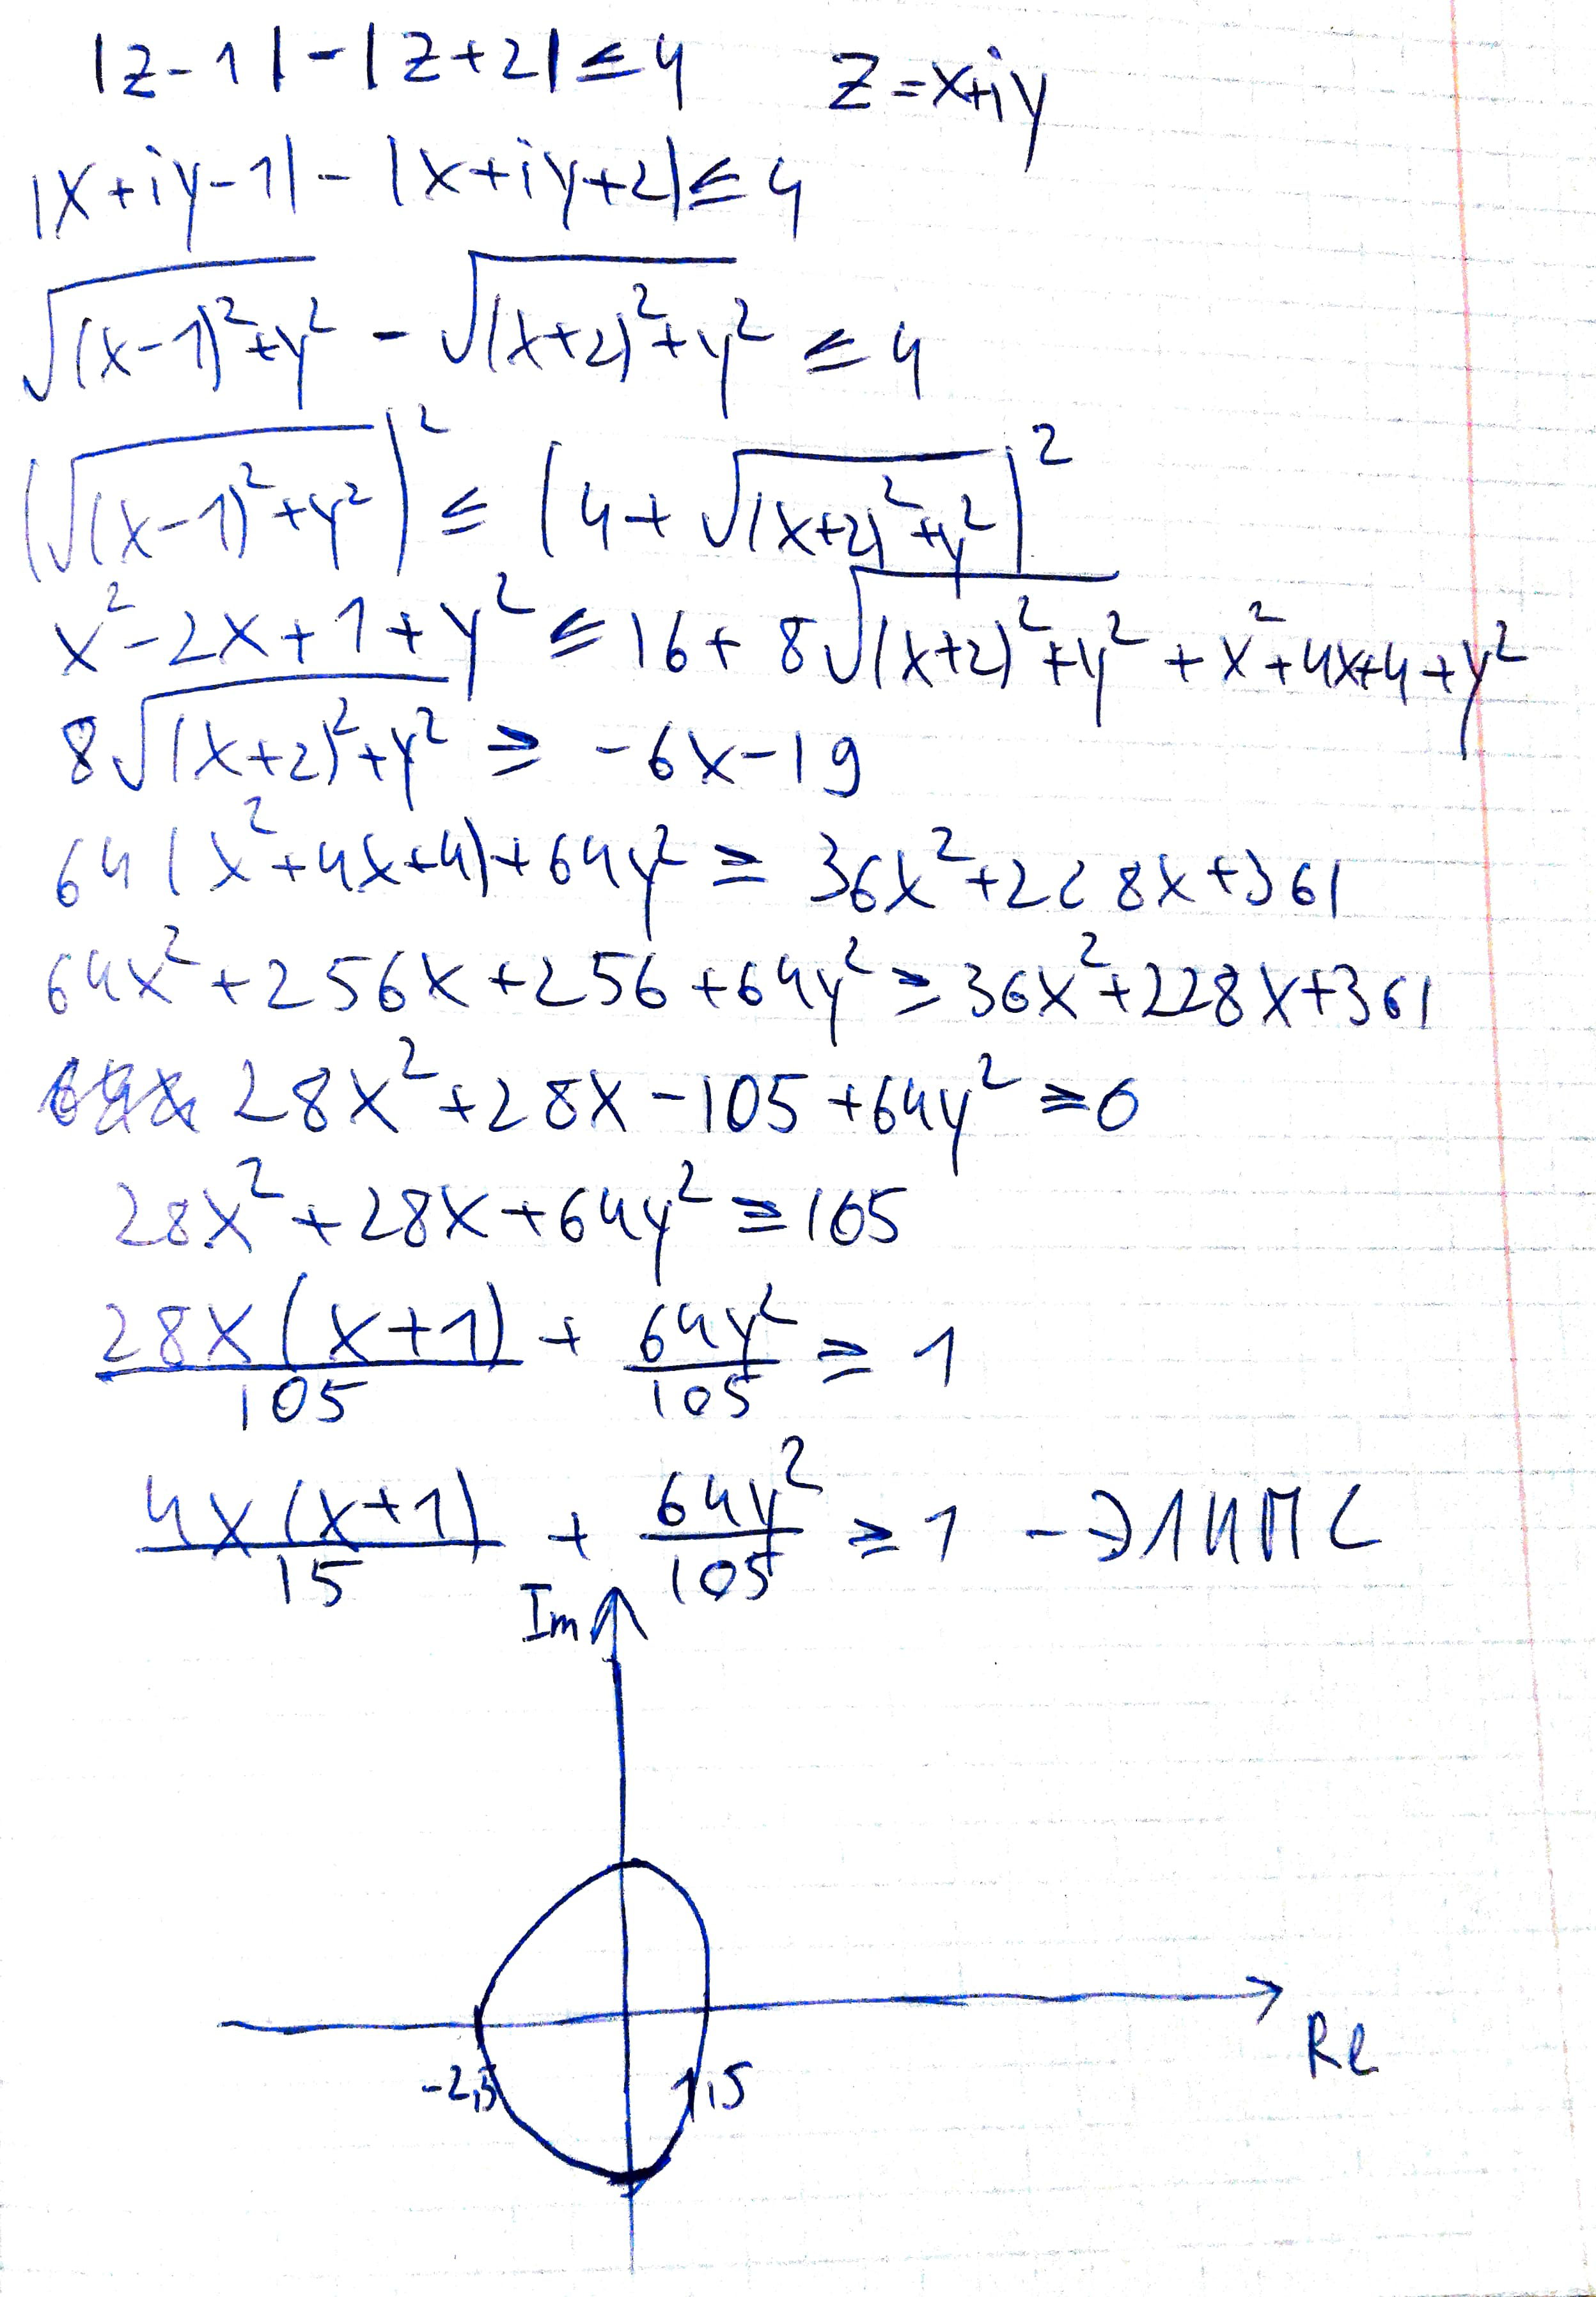 |z-1|-|z+2|≤4 z=x+iy
|x+iy-1|-|x+iy+2|≤4
√((x-1)²+y²) - √((x+2)²+y²) ≤ 4
(√((x-1)²+y²))² ≤ (4+√((x+2)²+y²))²
x²-2x+1+y² ≤ 16+8√((x+2)²+y²)+x²+4x+4+y²
8√((x+2)²+y²) ≥ -6x-19
64(x²+4x+4)+64y² ≥ 36x²+228x+361
64x²+256x+256+64y² ≥ 36x²+228x+361
28x²+28x-105+64y² ≥ 0
28x²+28x+64y² ≥ 105
28x(x+1)/105 + 64y²/105 ≥ 1
4x(x+1)/15 + 64y²/105 ≥ 1 - ЭЛИПС
Im
Re
-2,5 1,5